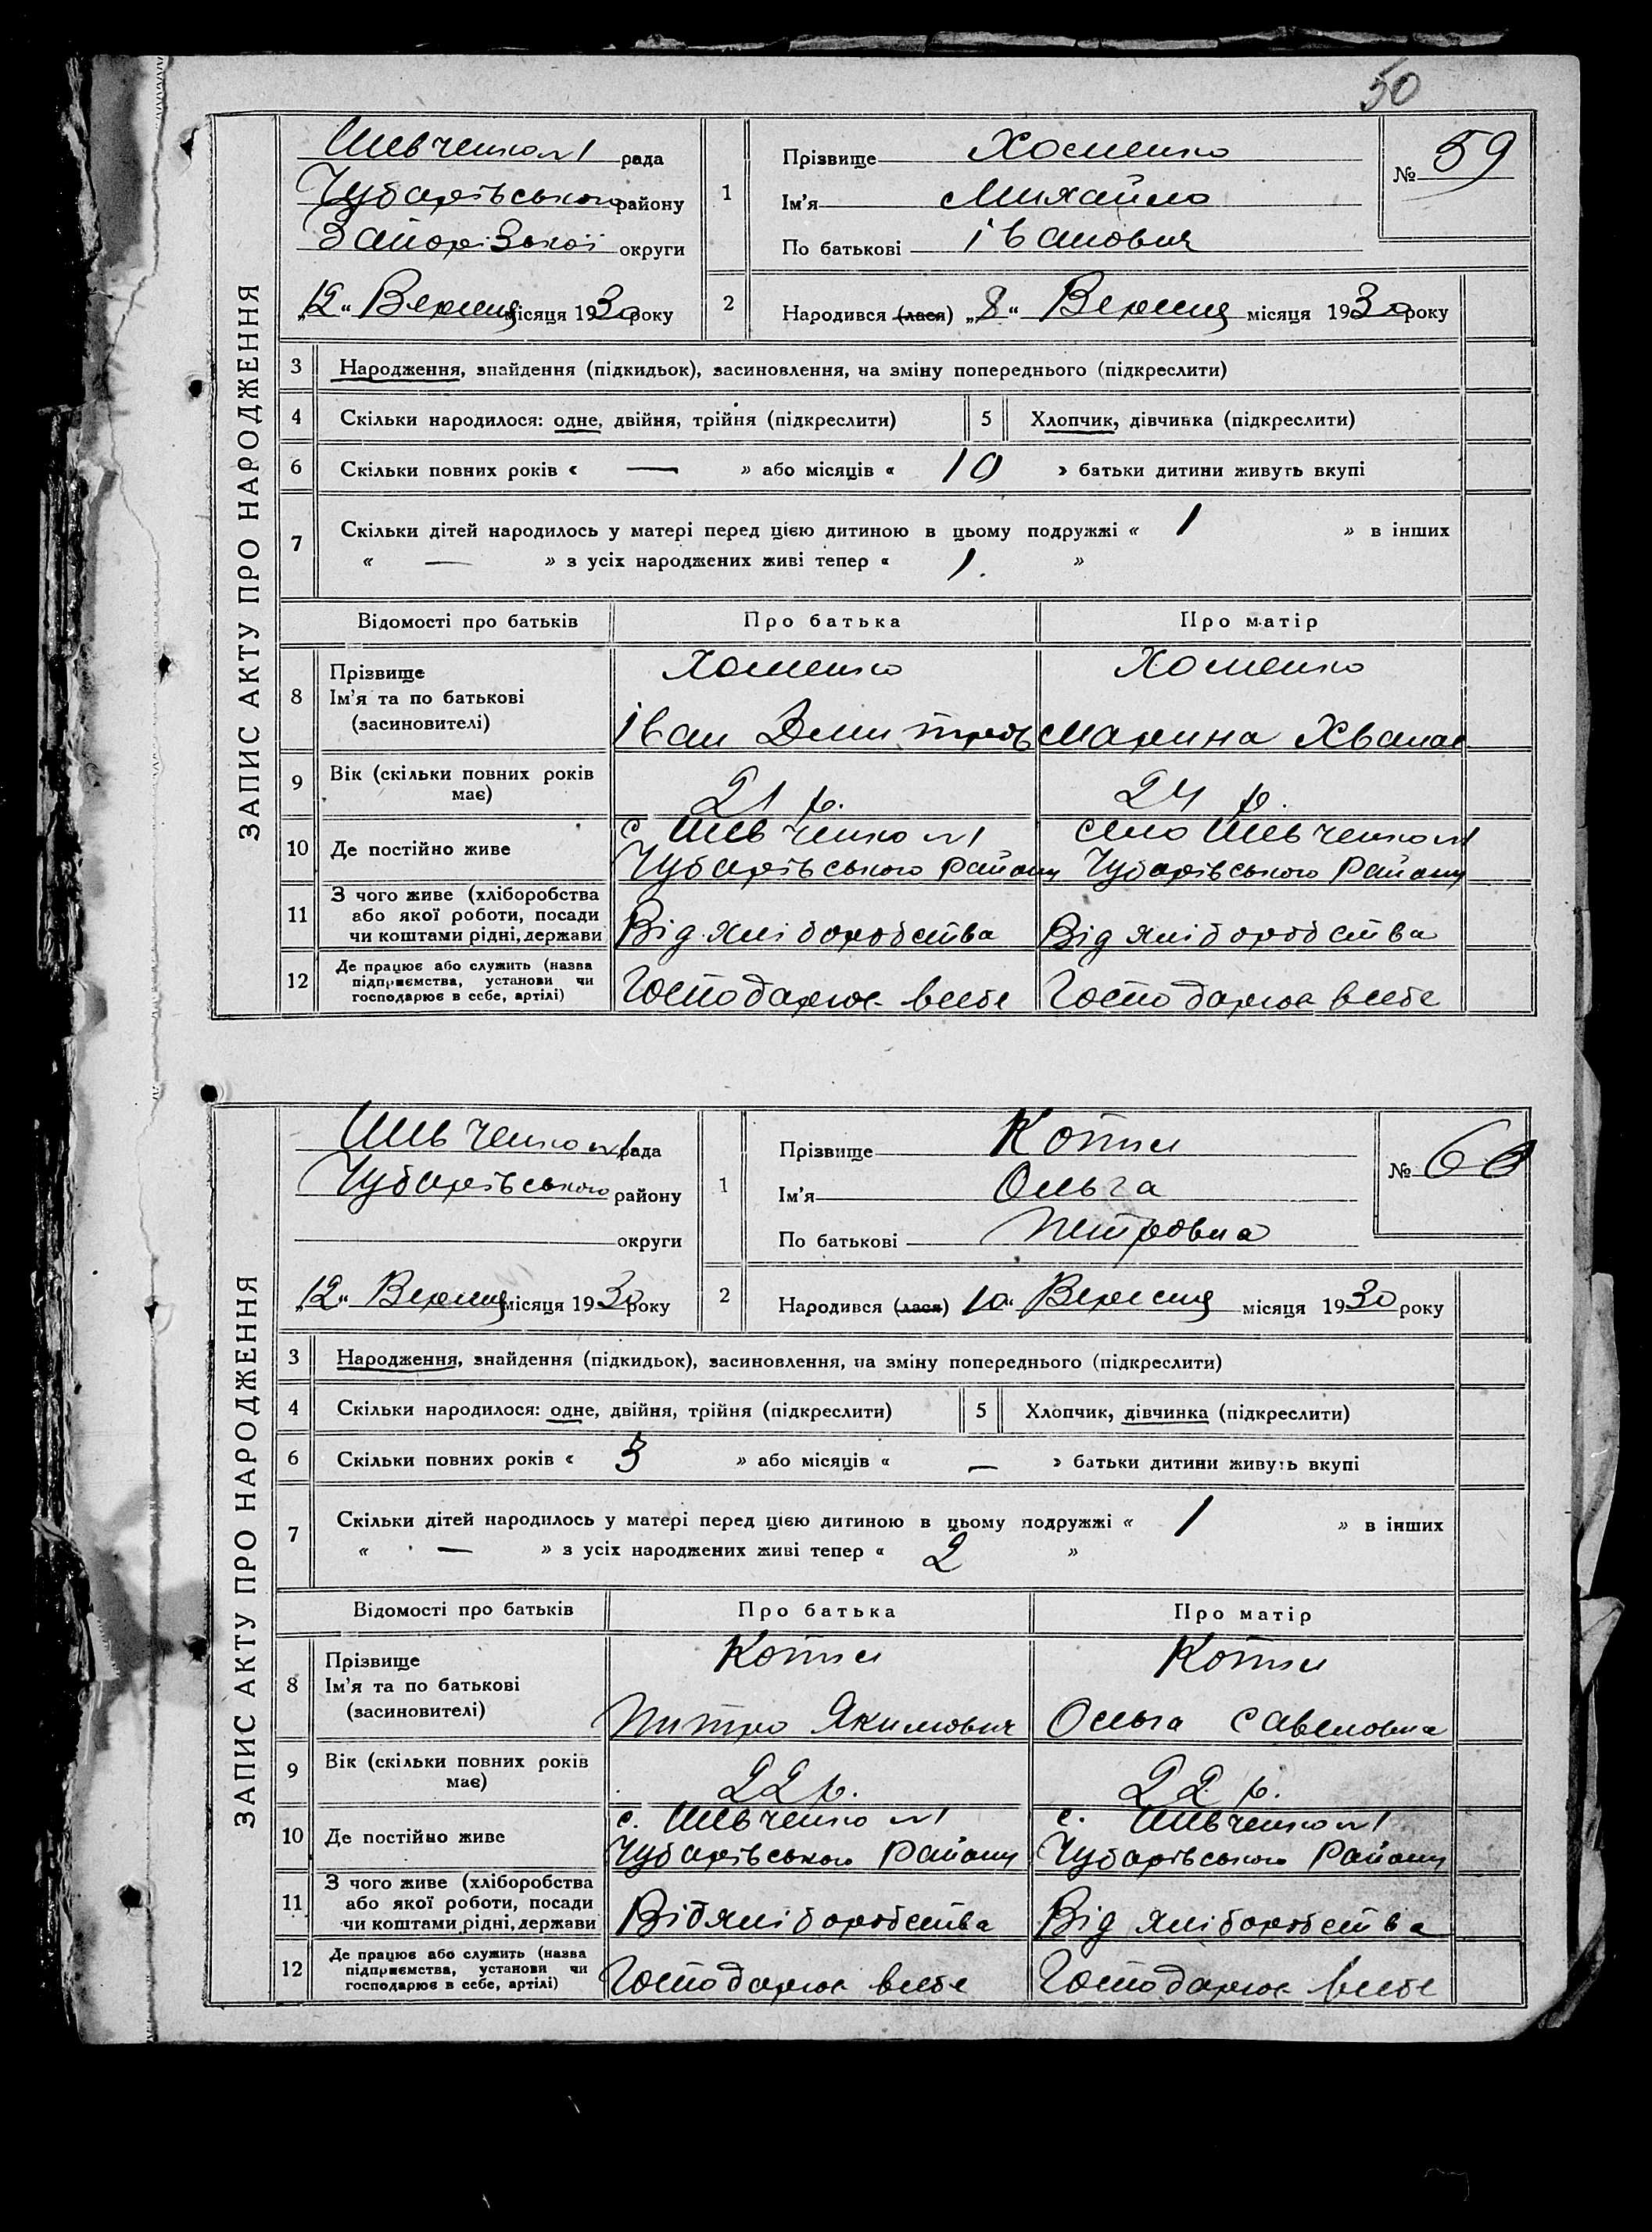 50
ЗАПИС АКТУ ПРО НАРОДЖЕННЯ
Шевченко №1 рада
Чубарівського району
Запорізької округи
„12“ Вересня місяця 1930 року
1
Прізвище Хоменко
Ім'я Михайло
По батькові Іванович
№ 59
2
Народився (лася) „8“ Вересня місяця 1930 року
3 Народження, знайдення (підкидьок), засиновлення, на зміну попереднього (підкреслити)
4 Скільки народилося: одне, двійня, трійня (підкреслити) 5 Хлопчик, дівчинка (підкреслити)
6 Скільки повних років « — » або місяців « 10 » батьки дитини живуть вкупі
7 Скільки дітей народилось у матері перед цією дитиною в цьому подружжі « 1 » в інших
« — » з усіх народжених живі тепер « 1. »
Відомості про батьків Про батька Про матір
8 Прізвище
Ім'я та по батькові
(засиновителі)
Хоменко
Іван Дмитров
Хоменко
Марина Хванас
9 Вік (скільки повних років
має)
21 р.
24 р.
10 Де постійно живе
с. Шевченко №1
Чубарівського Району
село Шевченко №1
Чубарівського Району
11 З чого живе (хліборобства
або якої роботи, посади
чи коштами рідні, держави
Від хліборобства
Від хліборобства
12 Де працює або служить (назва
підприємства, установи чи
господарює в себе, артілі)
Господарює всебе
Господарює всебе
ЗАПИС АКТУ ПРО НАРОДЖЕННЯ
Шевченко №1 рада
Чубарівського району
округи
„12“ Вересня місяця 1930 року
1
Прізвище
Ім'я Ольга
По батькові Петровна
№ 60
2
Народився (лася) 10“ Вересня місяця 1930 року
3 Народження, знайдення (підкидьок), засиновлення, на зміну попереднього (підкреслити)
4 Скільки народилося: одне, двійня, трійня (підкреслити) 5 Хлопчик, дівчинка (підкреслити)
6 Скільки повних років « 3 » або місяців « — » батьки дитини живуть вкупі
7 Скільки дітей народилось у матері перед цією дитиною в цьому подружжі « 1 » в інших
« — » з усіх народжених живі тепер « 2 »
Відомості про батьків Про батька Про матір
8 Прізвище
Ім'я та по батькові
(засиновителі)
Якимович
Ольга Савеловна
9 Вік (скільки повних років
має)
22 р.
22 р.
10 Де постійно живе
с. Шевченко №1
Чубарівського Району
с. Шевченко №1
Чубарівського Району
11 З чого живе (хліборобства
або якої роботи, посади
чи коштами рідні, держави
Від хліборобства
Від хліборобства
12 Де працює або служить (назва
підприємства, установи чи
господарює в себе, артілі)
Господарює всебе
Господарює всебе